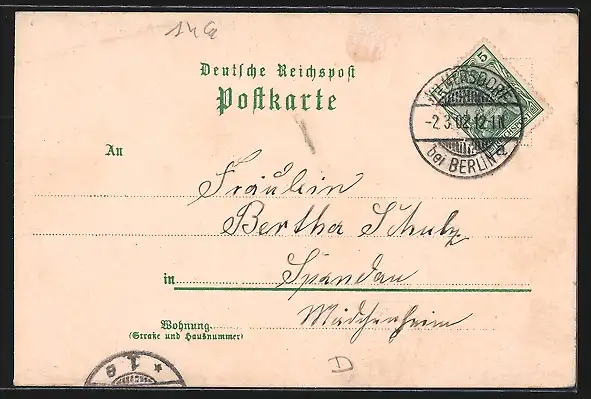 14a
Deutsche Reichspost
Postkarte
5
WILMERSDORF
-2.3.02.12-1N.
bei BERLIN
An
Fräulein
Bertha Schulz
in Spandau
Mädchenheim
Wohnung
(Straße und Hausnummer)